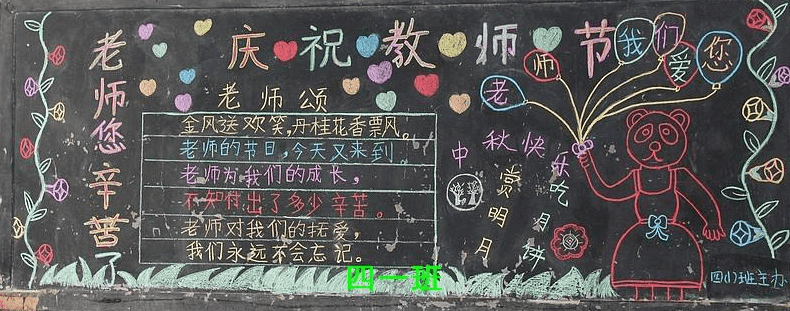 庆祝教师节
老师我们爱您
老师您辛苦了
老师颂
金风送欢笑,丹桂花香票风。
老师的节日,今天又来到。
老师为我们的成长,
不知付出了多少辛苦。
老师对我们的抚爱,
我们永远不会忘记。
中秋快乐
赏明月
吃月饼
四(1)班主办
四一班